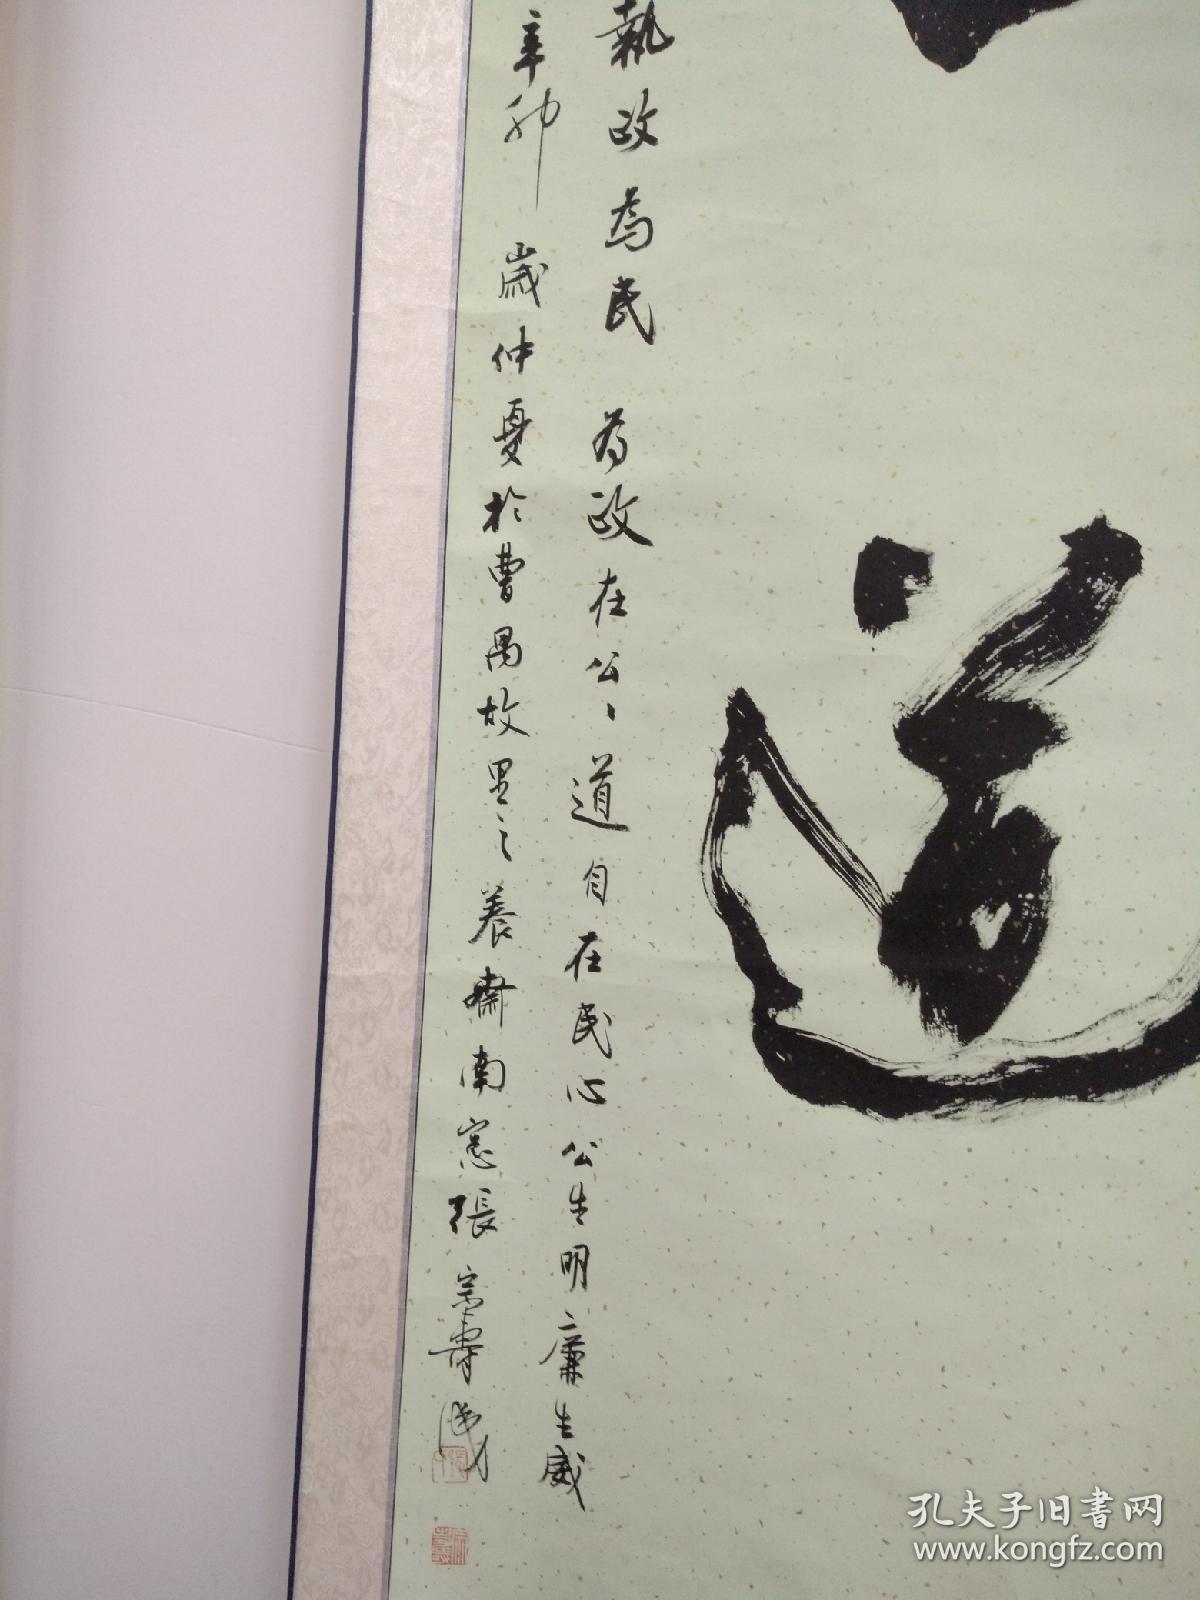 道
執政為民 为政在公、道自在民心公生明廉生威
辛卯歲仲夏於曹禺故里之養齋南窓張宗壽
孔夫子旧書网
www.kongfz.com